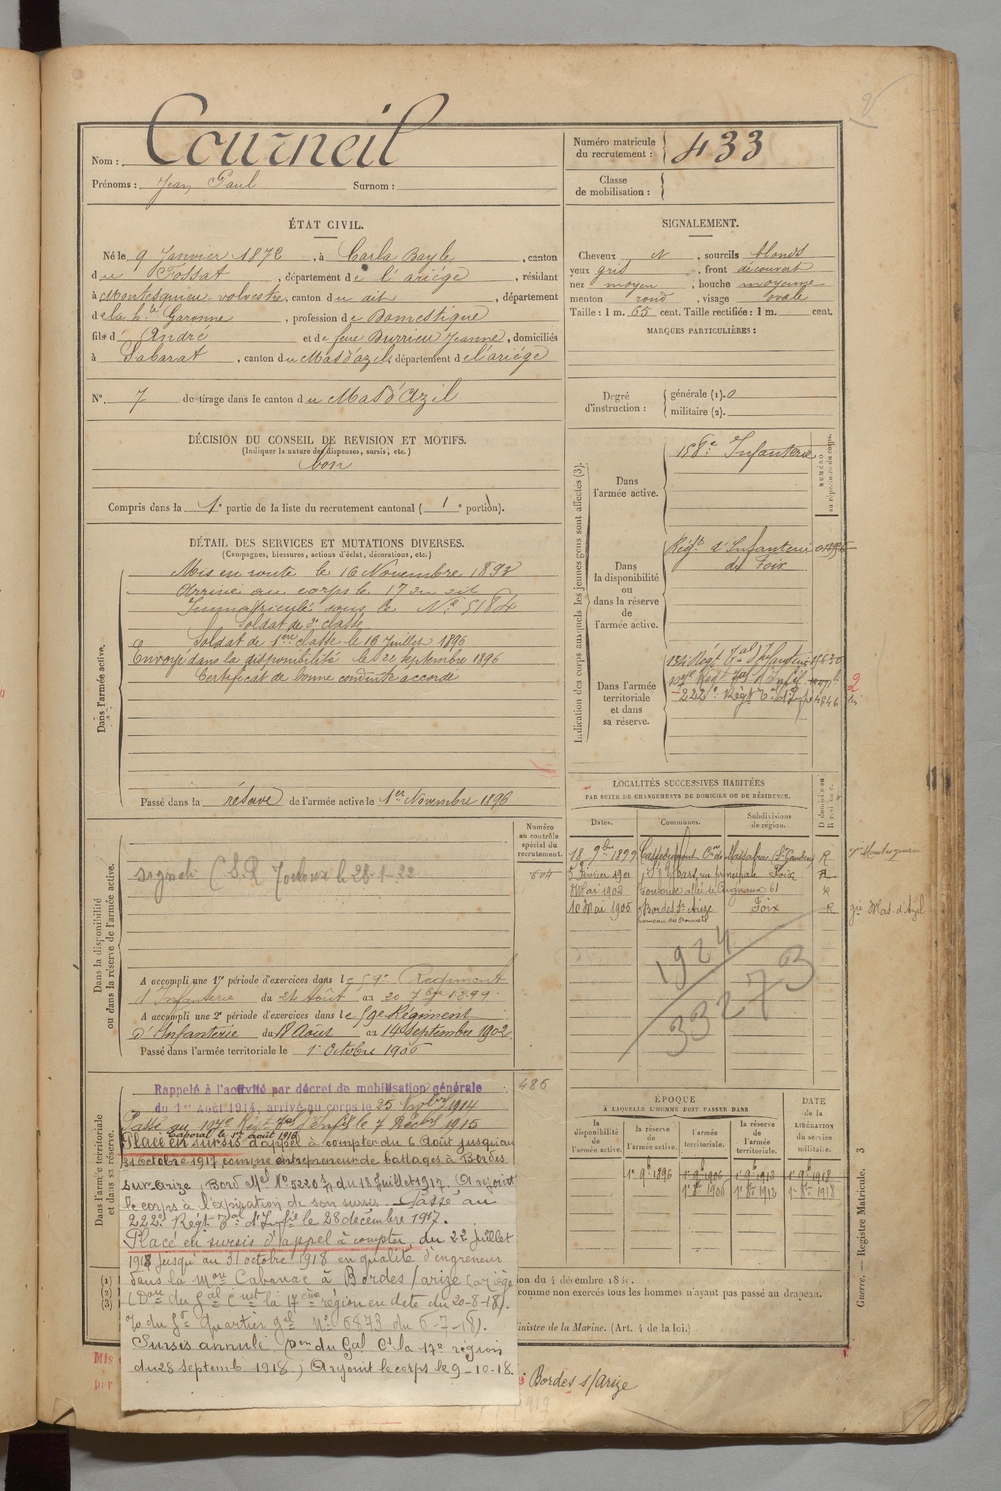 Courneil
Nom :
Prénoms : Jean Paul Surnom :
Numéro matricule du recrutement : 433
Classe de mobilisation :
ÉTAT CIVIL.
Né le 9 Janvier 1872, à Carla Bayle, canton
du Fossat, département de l'ariége, résidant
à Montesquieu volvestre, canton du dit, département
de la hte Garonne, profession de Domestique
fils d' André et de feue Burrieu Jeanne, domiciliés
à Sabarat, canton du Mas d'azil, département de l'ariége
N° 7 de tirage dans le canton du Mas d'Azil
SIGNALEMENT.
Cheveux N, sourcils blonds
yeux gris, front découvert
nez moyen, bouche moyenne
menton rond, visage ovale
Taille : 1 m. 65 cent. Taille rectifiée : 1 m. cent.
MARQUES PARTICULIÈRES :
Degré d'instruction : générale (1). 0
militaire (2).
DÉCISION DU CONSEIL DE REVISION ET MOTIFS.
(Indiquer la nature des dispenses, sursis, etc.)
bon
Compris dans la 1e partie de la liste du recrutement cantonal (1e portion).
DÉTAIL DES SERVICES ET MUTATIONS DIVERSES.
(Campagnes, blessures, actions d'éclat, décorations, etc.)
Dans l'armée active.
Mis en route le 16 Novembre 1893
Arrivé au corps le 17 du dit
Immatriculé sous le N° 5184
Soldat de 2e classe
Soldat de 1ère classe le 16 Juillet 1896
Envoyé dans la disponibilité le 22 septembre 1896
Certificat de bonne conduite accordé
Passé dans la réserve de l'armée active le 1er Novembre 1896
Indication des corps auxquels les jeunes gens sont affectés (3).
Dans l'armée active.
158e Infanterie
NUMÉRO au répertoire du corps.
Dans la disponibilité ou dans la réserve de l'armée active.
Régt d'Infanterie
de Foix
Dans l'armée territoriale et dans sa réserve.
134 Régt Tal d'Infanterie
222e Régt Tal d'Inf
2
LOCALITÉS SUCCESSIVES HABITÉES
PAR SUITE DE CHANGEMENTS DE DOMICILE OU DE RÉSIDENCE.
Dates. Communes. Subdivisions de région.
18 9bre 1899 R
5 Février 1901 Foix R
Mai 1902 Toulouse allée de 61 R
10 Mai 1905 Bordes s/Arize Foix R
gie Mas-d'Azil
1924
33273
Dans la disponibilité ou dans la réserve de l'armée active.
Numéro au contrôle spécial du recrutement.
504
signalé C.S.R Toulouse le 28-1-22
A accompli une 1re période d'exercices dans le 59e Régiment
d'Infanterie du 24 Août au 20 7bre 1899
A accompli une 2e période d'exercices dans le 59e Régiment
d'Infanterie du 18 Août au 14 septembre 1902
Passé dans l'armée territoriale le 1er Octobre 1906
486
Dans l'armée territoriale et dans sa réserve.
Rappelé à l'activité par décret de mobilisation générale
du 1er Août 1914, arrivé au corps le 25 1914
Passé au 107e Régt Tal d'Infie le 7 Décbre 1915
Caporal le 17 août 1916
Placé en sursis d'appel à compter du 6 Août jusqu'au
31 octobre 1917 comme entrepreneur de battages à Bordes
sur Arize (Bord Mel N° 5220 3/11 du 18 Juillet 1917. A rejoint
le corps à l'expiration de son sursis. Passé au
222e Régt Tal d'Infie le 28 décembre 1917.
Placé en sursis d'appel à compter du 22 juillet
1918 jusqu'au 31 octobre 1918 en qualité d'engreneur
dans la Mon Cabanac à Bordes s/arize (ariège)
(Don du Gal Ct la 17ème région en date du 20-8-18).
% du Gd Quartier Gal N° 6873 du 6-7-18).
Sursis annulé (Don du Gal Ct la 17e région
du 28 septemb 1918.) A rejoint le corps le 9-10-18.
ÉPOQUE
À LAQUELLE L'HOMME DOIT PASSER DANS
la disponibilité de l'armée active. la réserve de l'armée active. l'armée territoriale. la réserve de l'armée territoriale.
DATE de la LIBÉRATION du service militaire.
1er 9b 1896 1er 9b 1906 1er 9b 1912 1er 9b 1918
1er 8b 1906 1er 8b 1912 1er 8b 1918
(1)
(2)
(3)
comme non exercés tous les hommes n'ayant pas passé au drapeau.
Ministre de la Marine. (Art. 4 de la loi.)
Guerre. — Registre Matricule. 3
Bordes s/Arize